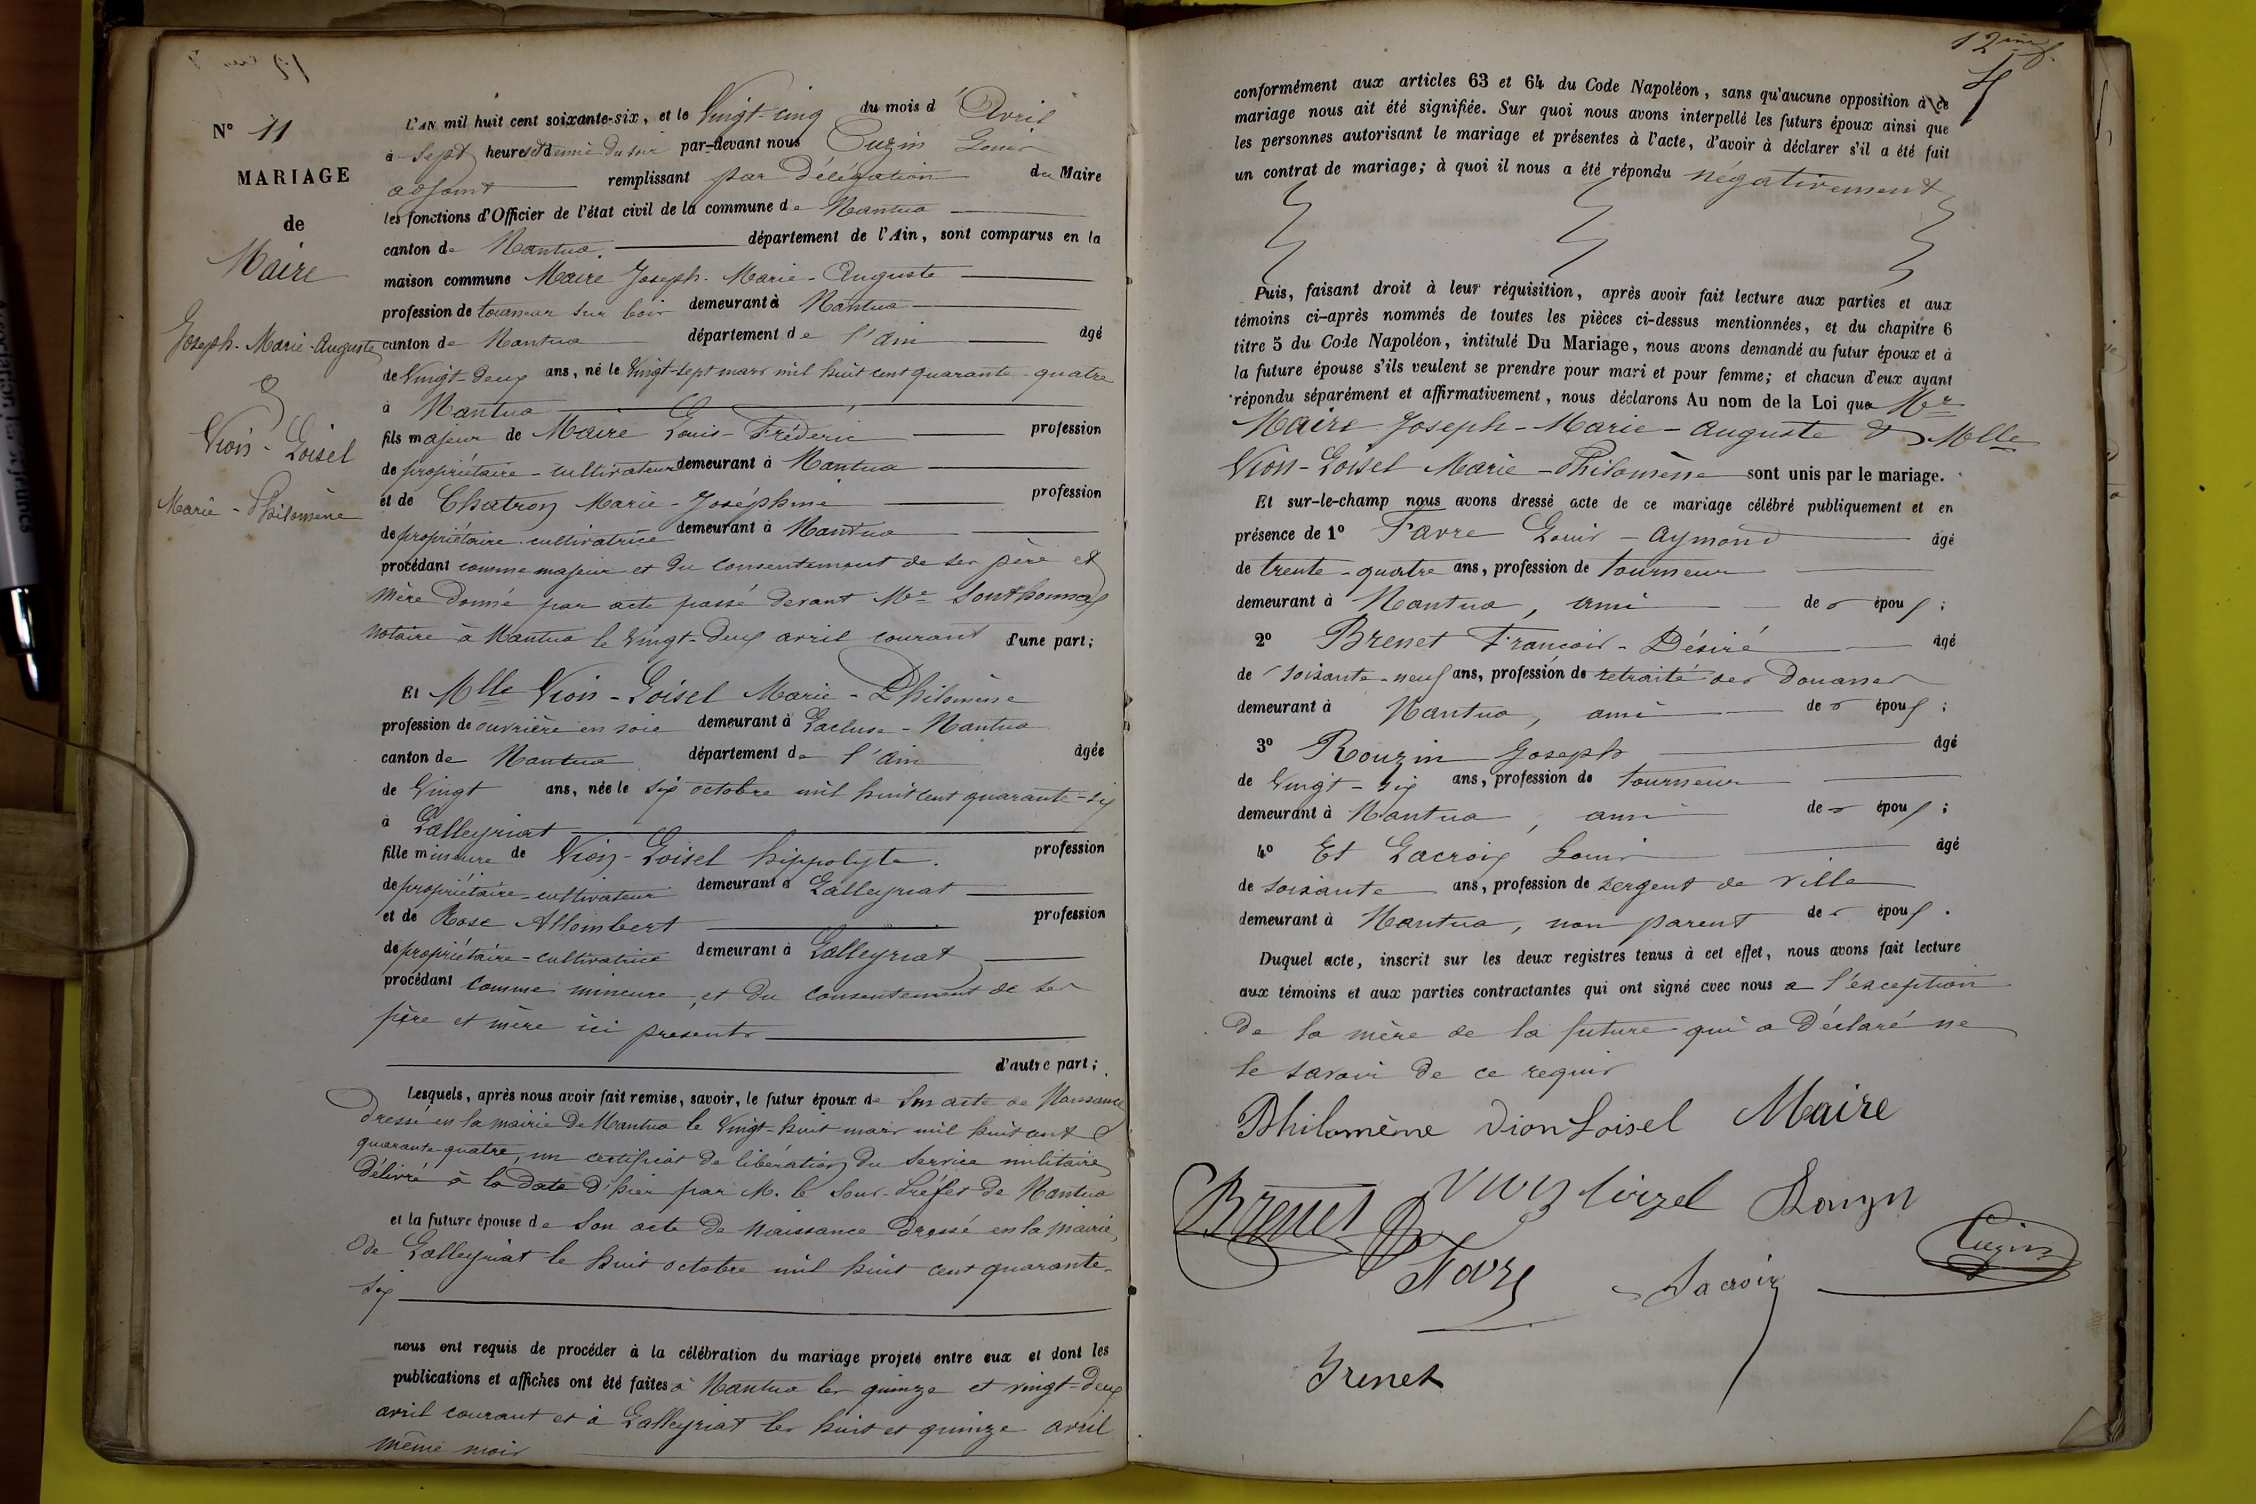 N° 11
MARIAGE
de
Maire
Joseph-Marie-Auguste
&
Vion-Loisel
Marie-Philomène
L'AN mil huit cent soixante-six, et le Vingt-cinq du mois d'Avril
à Sept heures et demie du soir par-devant nous Cuzin Louis
adjoint remplissant par Délégation du Maire
les fonctions d'Officier de l'état civil de la commune de Nantua
canton de Nantua. département de l'Ain, sont comparus en la
maison commune Maire Joseph-Marie-Auguste
profession de tourneur sur bois demeurant à Nantua
canton de Nantua département de l'Ain âgé
de Vingt-deux ans, né le Vingt-sept mars mil huit cent quarante-quatre
à Nantua
fils majeur de Maire Louis-Frédéric profession
de propriétaire-cultivateur demeurant à Nantua
et de Chatron Marie-Joséphine profession
de propriétaire-cultivatrice demeurant à Nantua
procédant comme majeur et du consentement de ses père et
mère donné par acte passé devant Me Southonnax
notaire à Nantua le Vingt-deux avril courant d'une part;
Et Mlle Vion-Loisel Marie-Philomène
profession de ouvrière en soie demeurant à Lacluse-Nantua
canton de Nantua département de l'Ain âgée
de Vingt ans, née le six octobre mil huit cent quarante-six
à Lalleyriat
fille mineure de Vion-Loisel hippolyte. profession
de propriétaire-cultivateur demeurant à Lalleyriat
et de Rose Allombert profession
de propriétaire-cultivatrice demeurant à Lalleyriat
procédant comme mineure, et du consentement de ses
père et mère ici présents
d'autre part;
Lesquels, après nous avoir fait remise, savoir, le futur époux de Son acte de Naissance
dressé en la mairie de Nantua le Vingt-huit mars mil huit cent
quarante-quatre, un certificat de libération du Service militaire
délivré à la date d'hier par M. le Sous-Préfet de Nantua
et la future épouse de Son acte de Naissance dressé en la mairie
de Lalleyriat le huit octobre mil huit cent quarante-
six
nous ont requis de procéder à la célébration du mariage projeté entre eux et dont les
publications et affiches ont été faites à Nantua les quinze et vingt-deux
avril courant et à Lalleyriat les huit et quinze avril
même mois
12
conformément aux articles 63 et 64 du Code Napoléon, sans qu'aucune opposition à ce
mariage nous ait été signifiée. Sur quoi nous avons interpellé les futurs époux ainsi que
les personnes autorisant le mariage et présentes à l'acte, d'avoir à déclarer s'il a été fait
un contrat de mariage; à quoi il nous a été répondu négativement
Puis, faisant droit à leur réquisition, après avoir fait lecture aux parties et aux
témoins ci-après nommés de toutes les pièces ci-dessus mentionnées, et du chapitre 6
titre 5 du Code Napoléon, intitulé Du Mariage, nous avons demandé au futur époux et à
la future épouse s'ils veulent se prendre pour mari et pour femme; et chacun d'eux ayant
répondu séparément et affirmativement, nous déclarons Au nom de la Loi que Mr
Maire Joseph-Marie-Auguste & Mlle
Vion-Loisel Marie-Philomène sont unis par le mariage.
Et sur-le-champ nous avons dressé acte de ce mariage célébré publiquement et en
présence de 1° Favre Louis-Aymond âgé
de trente-quatre ans, profession de tourneur
demeurant à Nantua, ami des époux;
2° Brenet François-Désiré âgé
de soixante-neuf ans, profession de retraité des Douanes
demeurant à Nantua, ami des époux;
3° Rouzin Joseph âgé
de Vingt-six ans, profession de tourneur
demeurant à Nantua, ami des époux;
4° Et Lacroix Louis âgé
de soixante ans, profession de sergent de ville
demeurant à Nantua, non parent des époux.
Duquel acte, inscrit sur les deux registres tenus à cet effet, nous avons fait lecture
aux témoins et aux parties contractantes qui ont signé avec nous à l'exception
de la mère de la future qui a déclaré ne
le savoir de ce requis
Philomène Vion Loisel Maire
Brenet Vion loizel Rouzin
Cuzin
Favre Lacroix